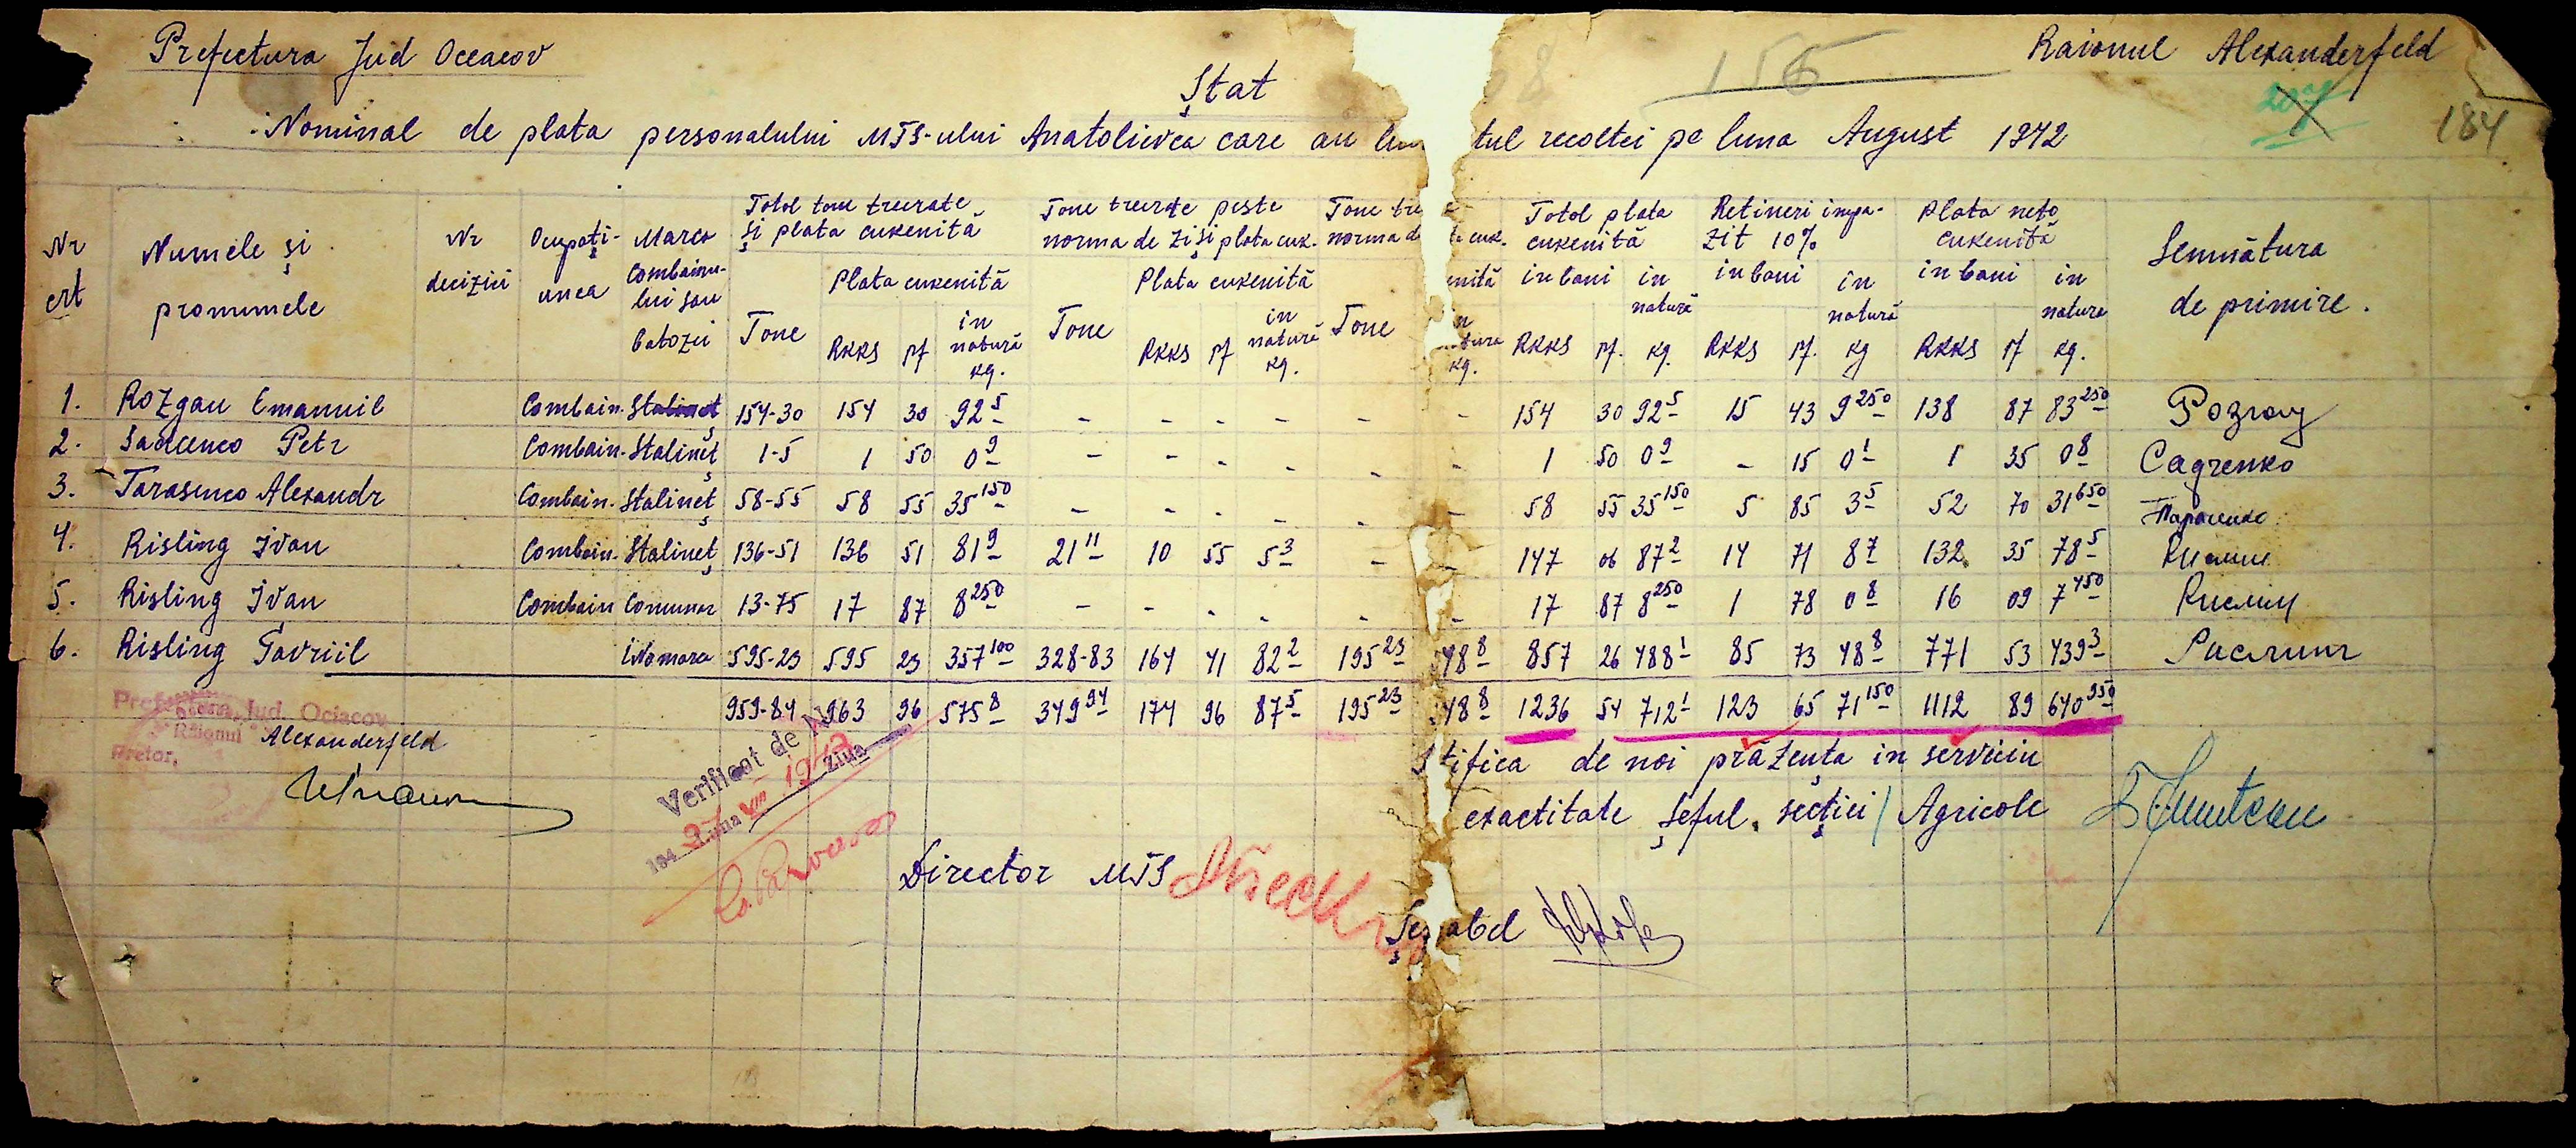 Prefectura Jud Oceacov
Raionul Alexanderfeld
Ștat
156
184
Nominal de plata personalului MTS-ului Anatolievca care au tul recoltei pe luna August 1942
Nr crt
Numele și pronumele
Nr decizici
Ocupați-unea
Marca Combainu-lui sau batozei
Totol tone treerate și plata cuvenită
Tone treerate peste norma de zi și plata cuv.
Tone norma cuv.
Totol plata cuvenită
Retineri impo-zit 10%
Plata neto cuvenită
Semnătura de primire.
Plata cuvenită Plata cuvenită in bani in natură in bani in natură in bani in natura
Tone RKKS pf in natură kg. Tone RKKS pf in natură kg. Tone kg. RKKS pf. kg. RKKS pf. kg RKKS pf kg.
1. Rozgau Emanuil Combain. Stalineț 154-30 154 30 92 5 - - - - - - 154 30 92 5 15 43 9 250 138 87 83 250
2. Petr Combain. Stalineț 1-5 1 50 0 9 - - - - - - 1 50 0 9 - 15 0 1 1 35 0 8 Садченко
3. Tarasenco Alexandr Combain. Stalineț 58-55 58 55 35 150 - - - - - - 58 55 35 150 5 85 3 5 52 70 31 650
4. Risling Ivan Combain. Stalineț 136-51 136 51 81 9 21 11 10 55 5 3 - - 147 06 87 2 14 71 8 7 132 35 78 5
5. Risling Ivan Combain Comunar 13-75 17 87 8 250 - - - - - - 17 87 8 250 1 78 0 8 16 09 7 450
6. Risling Gavriil 595-23 595 23 357 100 328-83 164 41 82 2 195 23 48 8 857 26 488 1 85 73 48 8 771 53 439 3
959-84 963 96 575 8 349 94 174 96 87 5 195 23 48 8 1236 54 712 1 123 65 71 150 1112 89 640 950
Prefectura Jud. Ociacov
Raionul Alexanderfeld
Pretor,
Verificat de
194 Luna VIII Ziua
tifica de noi prăzența in serviciu
exactitate Șeful secției Agricole
Director MTS